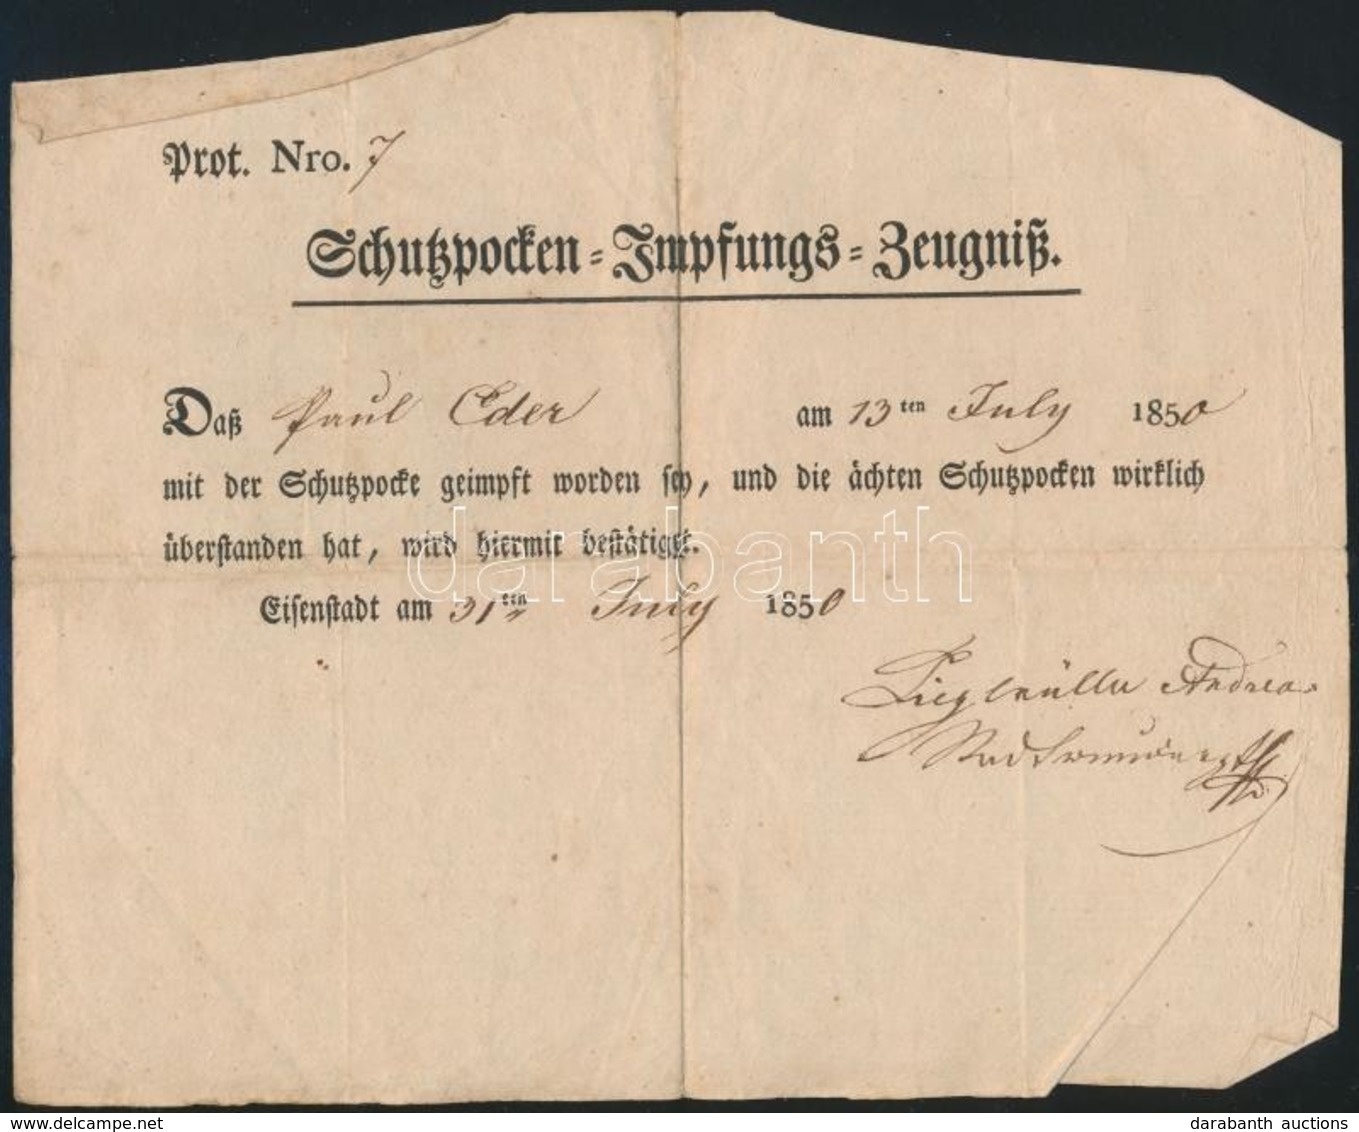 Prot. Nro. 7
Schutzpocken-Impfungs-Zeugniß.
Daß Paul Eder am 13ten July 1850
mit der Schutzpocke geimpft worden sey, und die ächten Schutzpocken wirklich
überstanden hat, wird hiermit bestätiget.
darabanth
Eisenstadt am 31ten July 1850
Andreas
delcampe.net
darabanth auctions